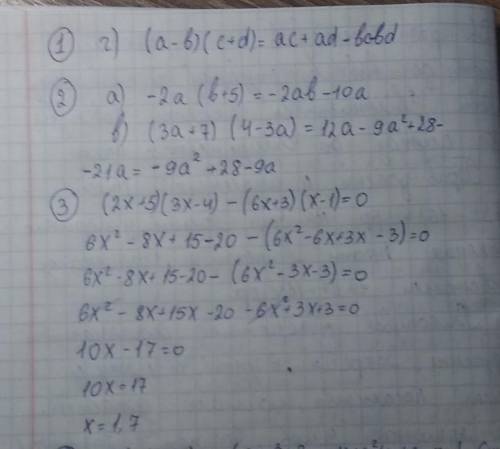 ① г) (a-b)(c+d)= ac+ad-bc-bd
② а) -2a (b+5) = -2ab-10a
в) (3a+7) (4-3a) = 12a - 9a²+28-
-21a = -9a² +28-9a
③ (2x+5)(3x-4) - (6x+3)(x-1)=0
6x² - 8x + 15-20 - (6x²-6x+3x - 3)=0
6x² - 8x + 15-20 - (6x² - 3x-3)=0
6x² - 8x+15x -20 -6x²+3x+3=0
10x -17=0
10x=17
x=1,7